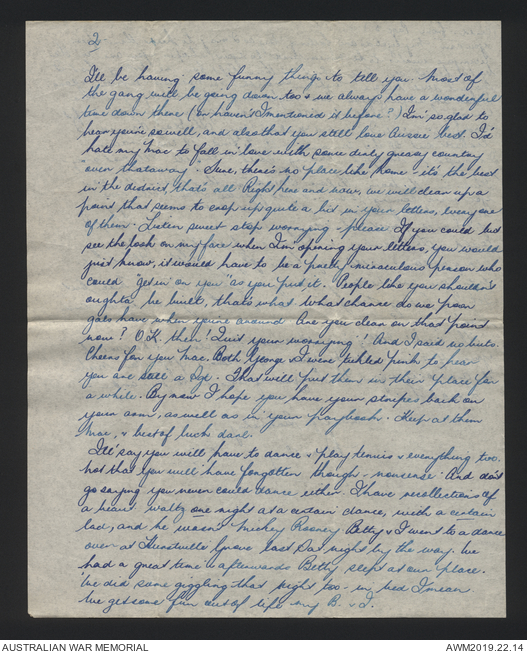 2
I'll be having some funny things to tell you. Most of
the gang will be going down too & we always have a wonderful
time down there (or haven't I mentioned it before?) I'm so glad to
hear you're so well, and also that you still love Aussie best. I'd
hate my Mac to fall in love with some dirty greasy country
"over thataway". Sure, there's no place like home - it's the best
in the district, that's all. Right here and now, we will clean up a
point that seems to crop up quite a bit in your letters, every one
of them. Listen sweet stop worrying - please. If you could but
see the look on my face when I'm opening your letters, you would
just know, it would have to be a pretty miraculous person who
could "get in" on you as you put it. People like you shouldn't
oughta be built, that's what. What chance do we poor
gals have when you're around. Are you clear on that point
now? O.K. then! Quit your worrying! And I said no buts.
Cheers for you Mac. Both George & I were tickled pink to hear
you are still a Sgt. That will put them in their place for
a while. By now I hope you have your stripes back on
your arm, as well as in your paybook. Keep at them
Mac, & best of luck darl.
I'll say you will have to dance & play tennis & everything too.
Not that you will have forgotten though - nonsense. And don't
go saying you never could dance either. I have recollections of
a waltz one night at a certain dance, with a certain
lad, and he wasn't Mickey Rooney. Betty & I went to a dance
over at Hurstville Grove last Sat night by the way. We
had a great time & afterwards Betty slept at our place.
We did some giggling that night too - in bed I mean.
We get some fun out of life my B. & I.
AUSTRALIAN WAR MEMORIAL
AWM2019.22.14